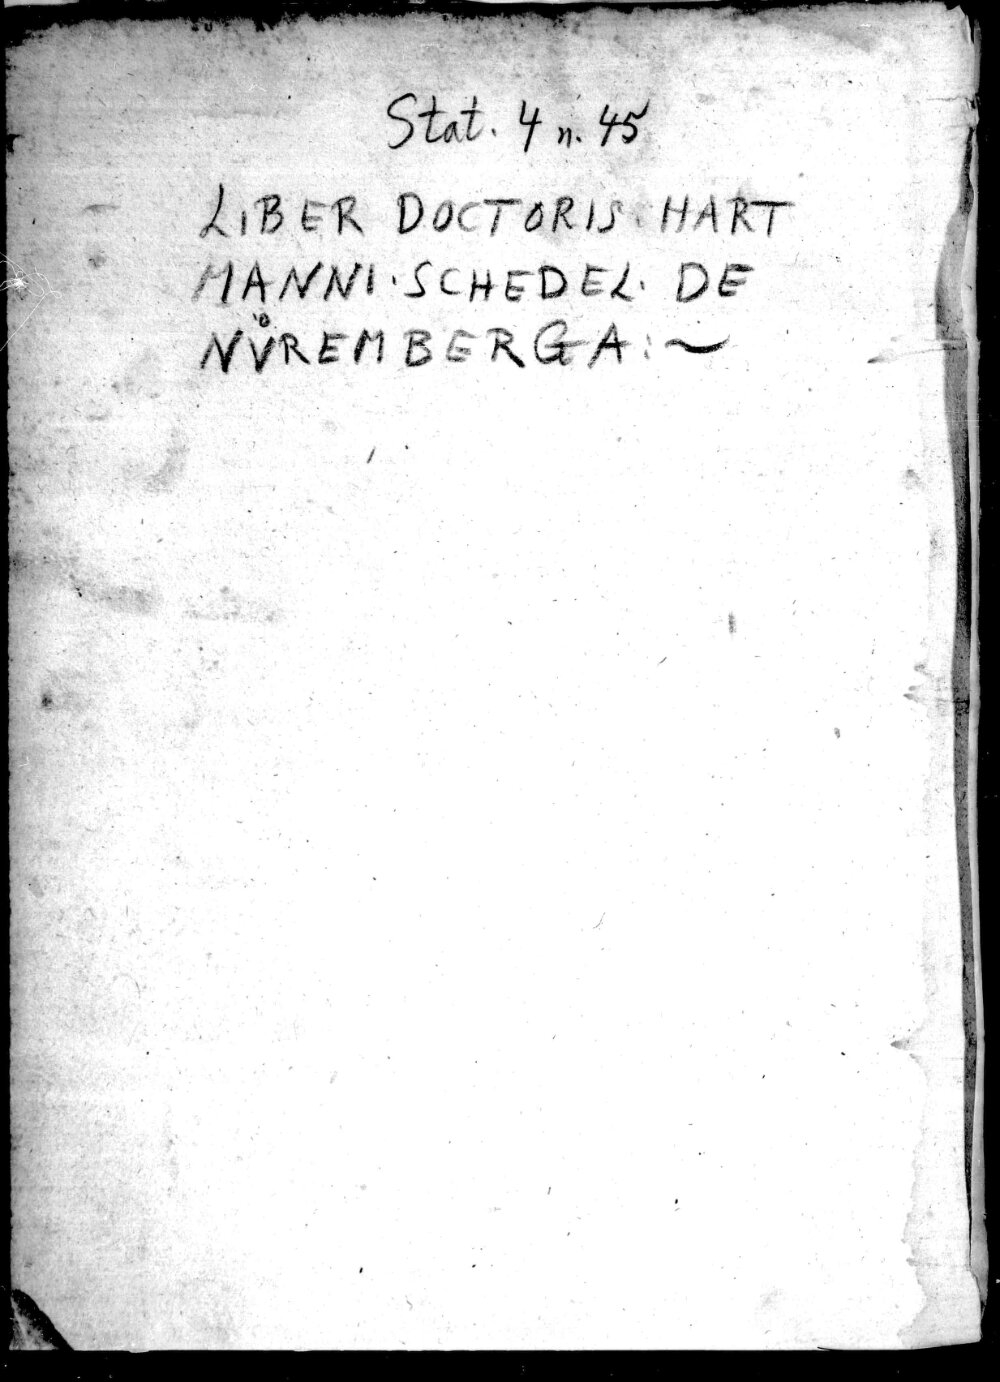 Stat. 4 n. 45
LIBER DOCTORIS HART
MANNI · SCHEDEL · DE
NVͦREMBERGA : ~